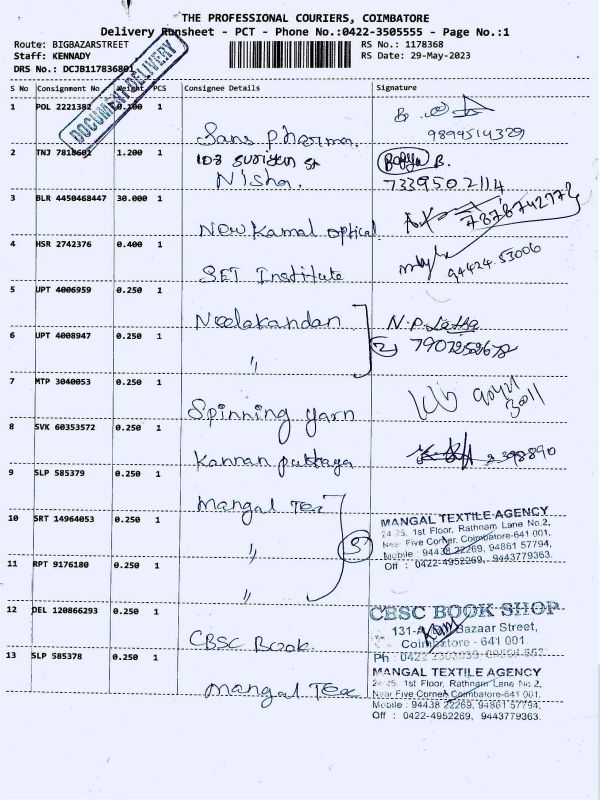 THE PROFESSIONAL COURIERS, COIMBATORE
Delivery Runsheet - PCT - Phone No.:0422-3505555 - Page No.:1
Route: BIGBAZARSTREET RS No.: 1178368
Staff: KENNADY RS Date: 29-May-2023
DRS No.: DCJB117836801
DOCUMENT DELIVERY
S No Consignment No Weight PCS Consignee Details Signature
1 POL 2221382 0.100 1
Sans pharma. 9894514329
2 TNJ 7818601 1.200 1
Nisha. 7339502114
3 BLR 4450468447 30.000 1
New Kamal optical
4 HSR 2742376 0.400 1
SET Institute 94424 53006
5 UPT 4006959 0.250 1
Neelakandan N.P.
6 UPT 4008947 0.250 1
" 2
7 MTP 3040053 0.250 1
Spinning yarn
8 SVK 60353572 0.250 1
Kannan
9 SLP 585379 0.250 1
Mangal Tex
10 SRT 14964053 0.250 1
"
MANGAL TEXTILE AGENCY
24-25, 1st Floor, Rathnam Lane No.2,
Near Five Corner, Coimbatore-641 001.
Mobile : 94438 22269, 94861 57794,
Off : 0422-4952269, 9443779363.
11 RPT 9176180 0.250 1
"
12 DEL 120866293 0.250 1
CBSC Book.
CBSC BOOK SHOP
Bazaar Street,
Coimbatore - 641 001
13 SLP 585378 0.250 1
Mangal Tex
MANGAL TEXTILE AGENCY
24-25, 1st Floor, Rathnam Lane No.2,
Near Five Corner, Coimbatore-641 001.
Mobile : 94438 22269, 94861 57794,
Off : 0422-4952269, 9443779363.